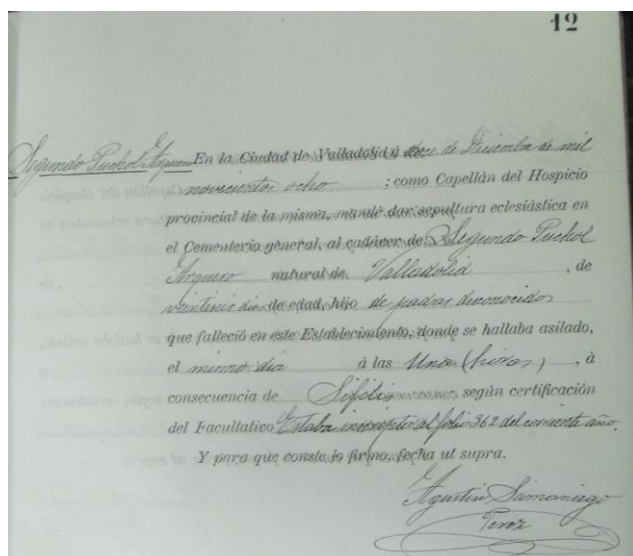 12
Segundo Puchol Arquero En la Ciudad de Valladolid á doce de Diciembre de mil
novecientos ocho ; como Capellán del Hospicio
provincial de la misma, mandé dar sepultura eclesiástica en
el Cementerio general, al cadáver de Segundo Puchol
Arquero natural de Valladolid , de
veintiseis dias de edad, hijo de padres desconocidos
que falleció en este Establecimiento, donde se hallaba asilado,
el mismo día á las Una (horas) , á
consecuencia de Sífilis según certificación
del Facultativo Estaba inscripto al folio 362 del corriente año.
Y para que conste lo firmo, fecha ut supra.
Agustín Samaniego
Perez